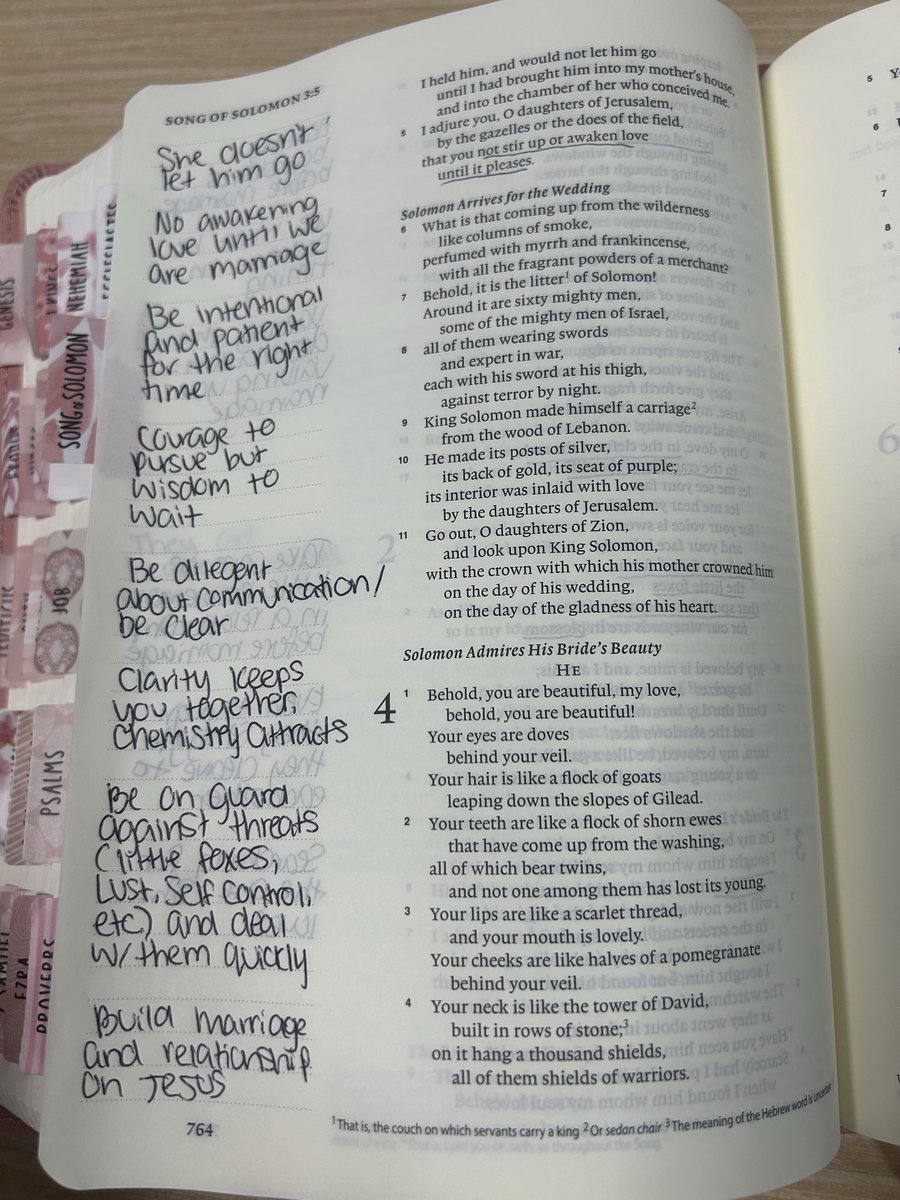 SONG OF SOLOMON 3:5
She doesn't
let him go
No awakening
love until we
are marriage
Be intentional
and patient
for the right
time
Courage to
pursue but
wisdom to
wait
Be dilegent
about communication/
be clear
Clarity keeps
you together,
Chemistry attracts
Be on guard
against threats
(little foxes,
Lust, Self control,
etc) and deal
w/ them quickly
Build marriage
and relationship
on Jesus
764
I held him, and would not let him go
until I had brought him into my mother's house,
and into the chamber of her who conceived me.
5 I adjure you, O daughters of Jerusalem,
by the gazelles or the does of the field,
that you not stir up or awaken love
until it pleases.
Solomon Arrives for the Wedding
6 What is that coming up from the wilderness
like columns of smoke,
perfumed with myrrh and frankincense,
with all the fragrant powders of a merchant?
7 Behold, it is the litter1 of Solomon!
Around it are sixty mighty men,
some of the mighty men of Israel,
8 all of them wearing swords
and expert in war,
each with his sword at his thigh,
against terror by night.
9 King Solomon made himself a carriage2
from the wood of Lebanon.
10 He made its posts of silver,
its back of gold, its seat of purple;
its interior was inlaid with love
by the daughters of Jerusalem.
11 Go out, O daughters of Zion,
and look upon King Solomon,
with the crown with which his mother crowned him
on the day of his wedding,
on the day of the gladness of his heart.
Solomon Admires His Bride's Beauty
HE
4 1 Behold, you are beautiful, my love,
behold, you are beautiful!
Your eyes are doves
behind your veil.
Your hair is like a flock of goats
leaping down the slopes of Gilead.
2 Your teeth are like a flock of shorn ewes
that have come up from the washing,
all of which bear twins,
and not one among them has lost its young.
3 Your lips are like a scarlet thread,
and your mouth is lovely.
Your cheeks are like halves of a pomegranate
behind your veil.
4 Your neck is like the tower of David,
built in rows of stone;3
on it hang a thousand shields,
all of them shields of warriors.
1 That is, the couch on which servants carry a king 2 Or sedan chair 3 The meaning of the Hebrew word is uncertain
GENESIS
NEHEMIAH
ECCLESIASTES
SONG OF SOLOMON
JOB
PSALMS
EZRA
PROVERBS
5
6
7
8